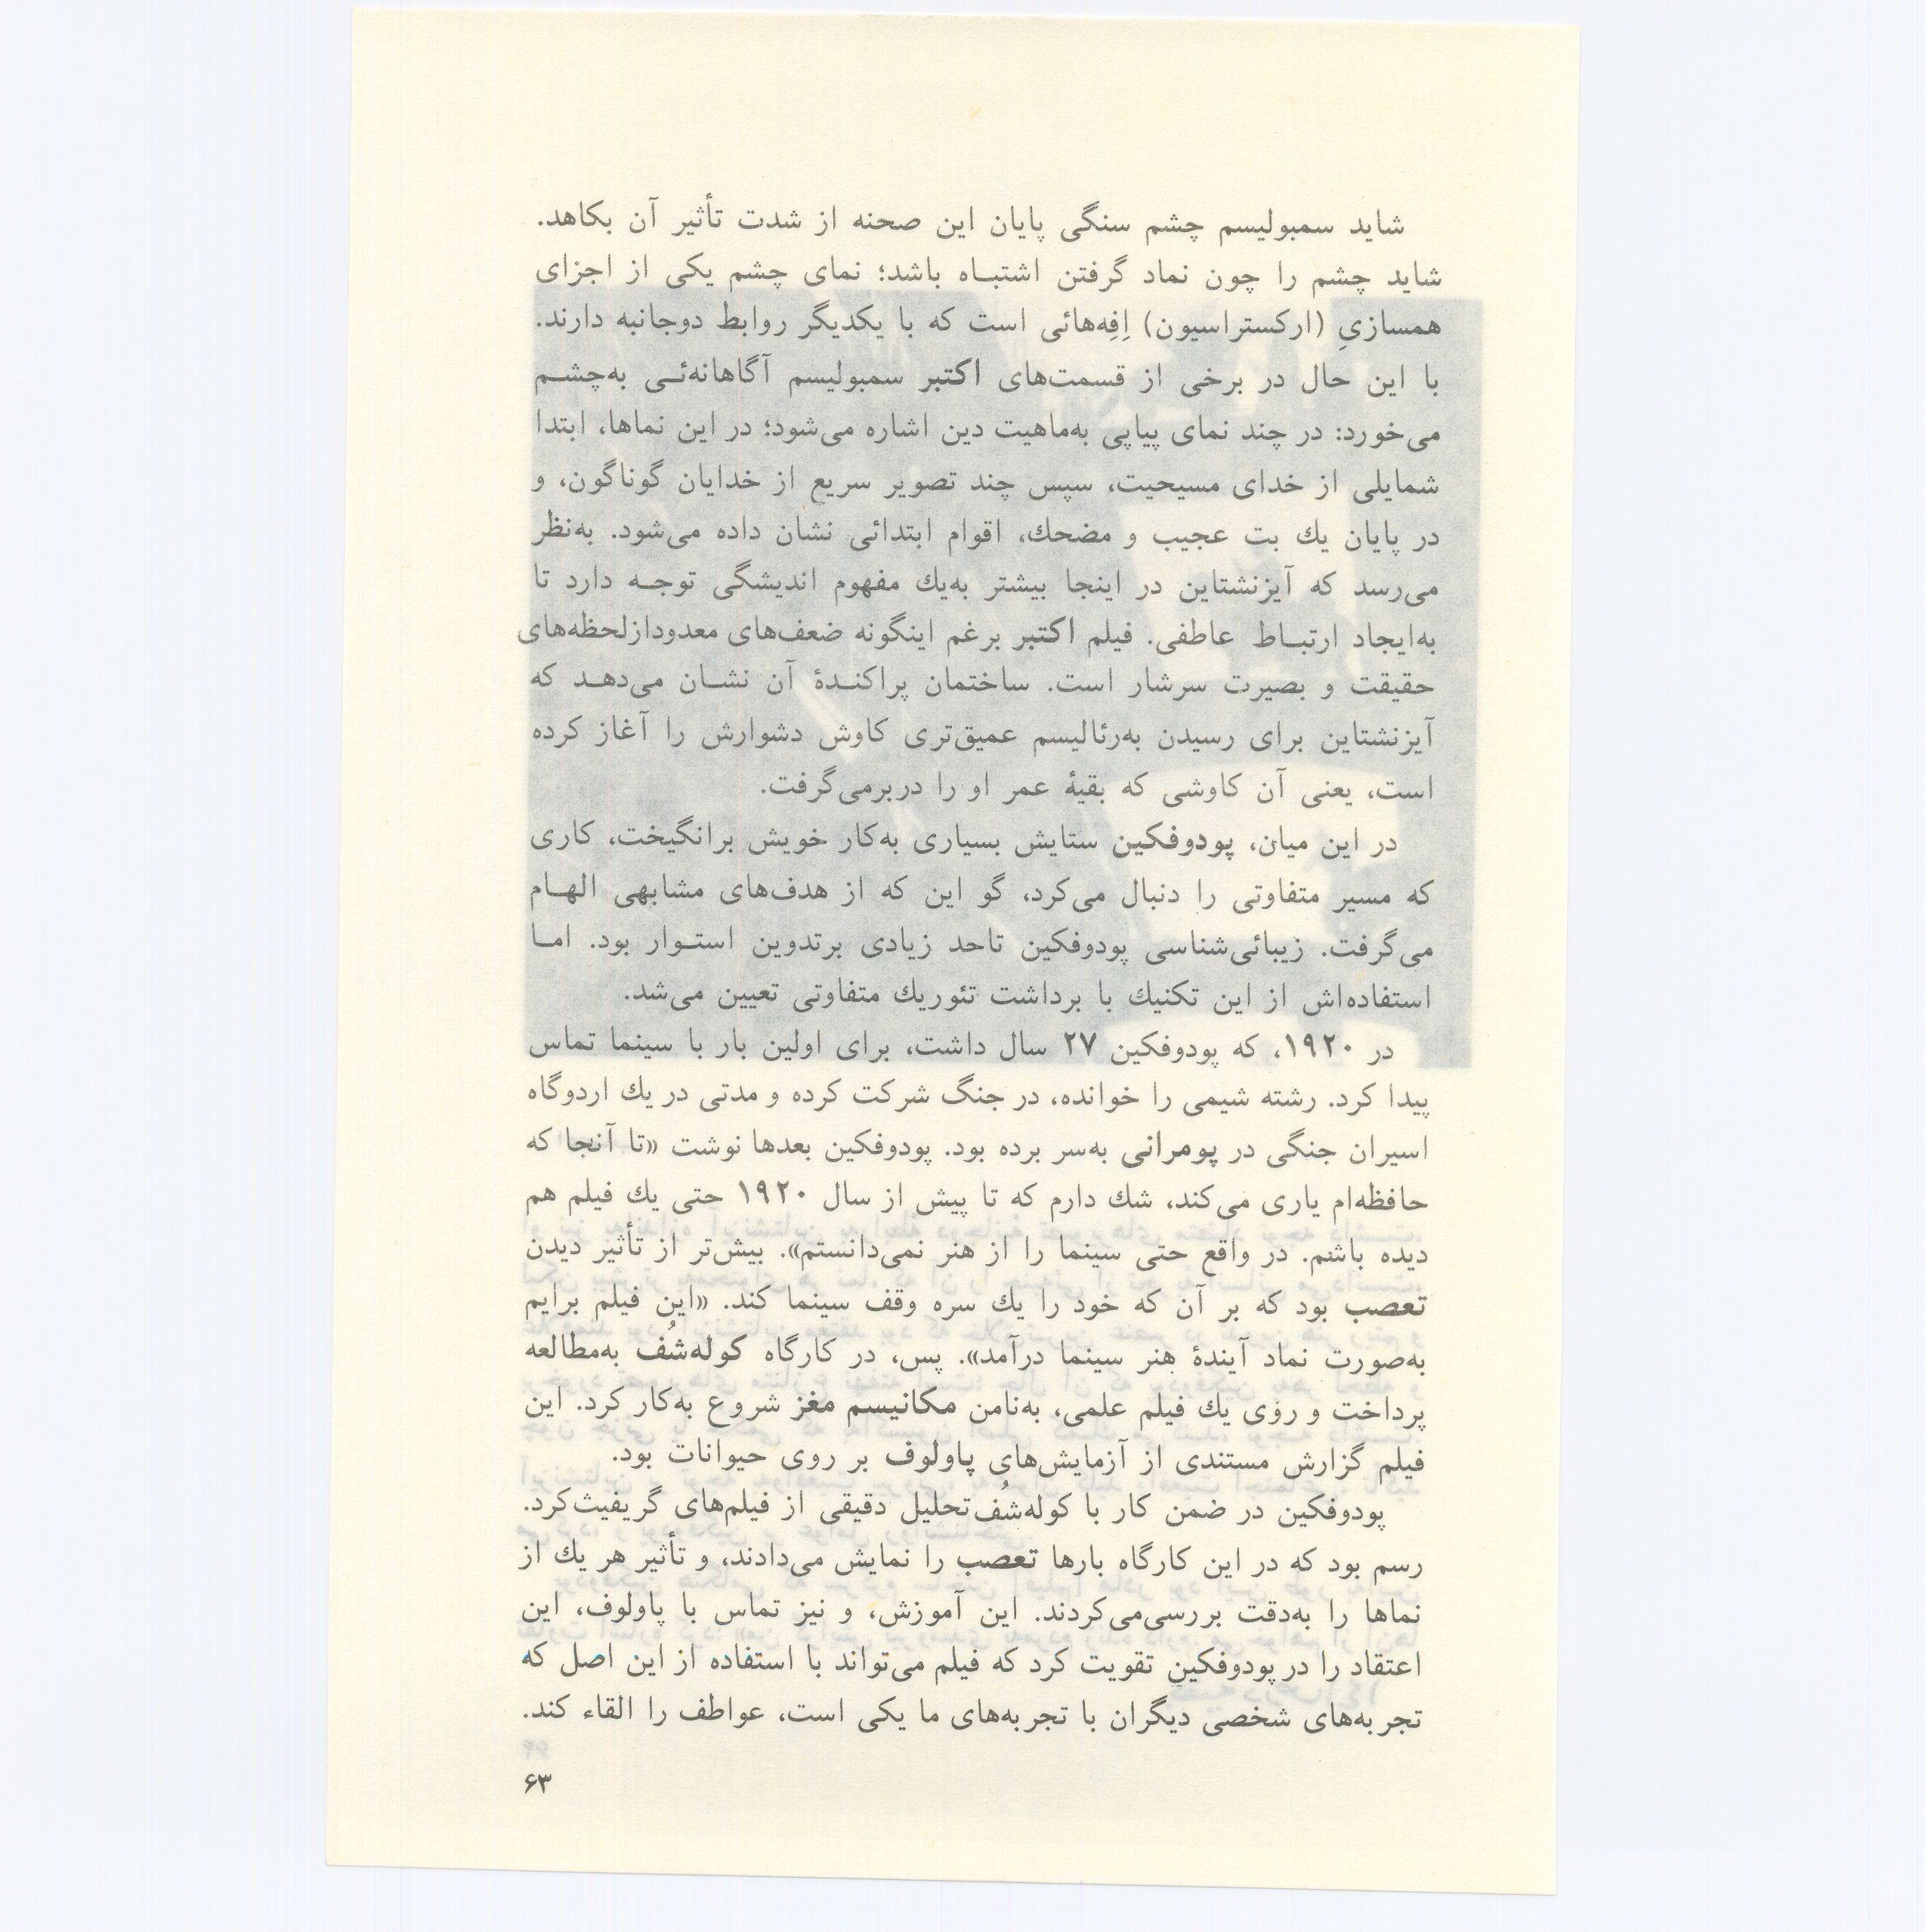 شاید سمبولیسم چشم سنگی پایان این صحنه از شدت تأثیر آن بکاهد.
شاید چشم را چون نماد گرفتن اشتباه باشد؛ نمای چشم یکی از اجزای
همسازیِ (ارکستراسیون) اِفِه‌هائی است که با یکدیگر روابط دوجانبه دارند.
با این حال در برخی از قسمت‌های اکتبر سمبولیسم آگاهانه‌ئی به‌چشم
می‌خورد: در چند نمای پیاپی به‌ماهیت دین اشاره می‌شود؛ در این نماها، ابتدا
شمایلی از خدای مسیحیت، سپس چند تصویر سریع از خدایان گوناگون، و
در پایان یك بت عجیب و مضحك، اقوام ابتدائی نشان داده می‌شود. به‌نظر
می‌رسد که آیزنشتاین در اینجا بیشتر به‌یك مفهوم اندیشگی توجه دارد تا
به‌ایجاد ارتباط عاطفی. فیلم اکتبر برغم اینگونه ضعف‌های معدودازلحظه‌های
حقیقت و بصیرت سرشار است. ساختمان پراکندهٔ آن نشان می‌دهد که
آیزنشتاین برای رسیدن به‌رئالیسم عمیق‌تری کاوش دشوارش را آغاز کرده
است، یعنی آن کاوشی که بقیهٔ عمر او را دربرمی‌گرفت.
در این میان، پودوفکین ستایش بسیاری به‌کار خویش برانگیخت، کاری
که مسیر متفاوتی را دنبال می‌کرد، گو این که از هدف‌های مشابهی الهام
می‌گرفت. زیبائی‌شناسی پودوفکین تاحد زیادی برتدوین استوار بود. اما
استفاده‌اش از این تکنیك با برداشت تئوریك متفاوتی تعیین می‌شد.
در ۱۹۲۰، که پودوفکین ۲۷ سال داشت، برای اولین بار با سینما تماس
پیدا کرد. رشته شیمی را خوانده، در جنگ شرکت کرده و مدتی در یك اردوگاه
اسیران جنگی در پومرانی به‌سر برده بود. پودوفکین بعدها نوشت «تا آنجا که
حافظه‌ام یاری می‌کند، شك دارم که تا پیش از سال ۱۹۲۰ حتی یك فیلم هم
دیده باشم. در واقع حتی سینما را از هنر نمی‌دانستم». بیش‌تر از تأثیر دیدن
تعصب بود که بر آن که خود را یك سره وقف سینما کند. «این فیلم برایم
به‌صورت نماد آیندهٔ هنر سینما درآمد». پس، در کارگاه کوله‌شُف به‌مطالعه
پرداخت و روی یك فیلم علمی، به‌نامن مکانیسم مغز شروع به‌کار کرد. این
فیلم گزارش مستندی از آزمایش‌های پاولوف بر روی حیوانات بود.
پودوفکین در ضمن کار با کوله‌شُف تحلیل دقیقی از فیلم‌های گریفیث‌کرد.
رسم بود که در این کارگاه بارها تعصب را نمایش می‌دادند، و تأثیر هر یك از
نماها را به‌دقت بررسی‌می‌کردند. این آموزش، و نیز تماس با پاولوف، این
اعتقاد را در پودوفکین تقویت کرد که فیلم می‌تواند با استفاده از این اصل که
تجربه‌های شخصی دیگران با تجربه‌های ما یکی است، عواطف را القاء کند.
۶۳